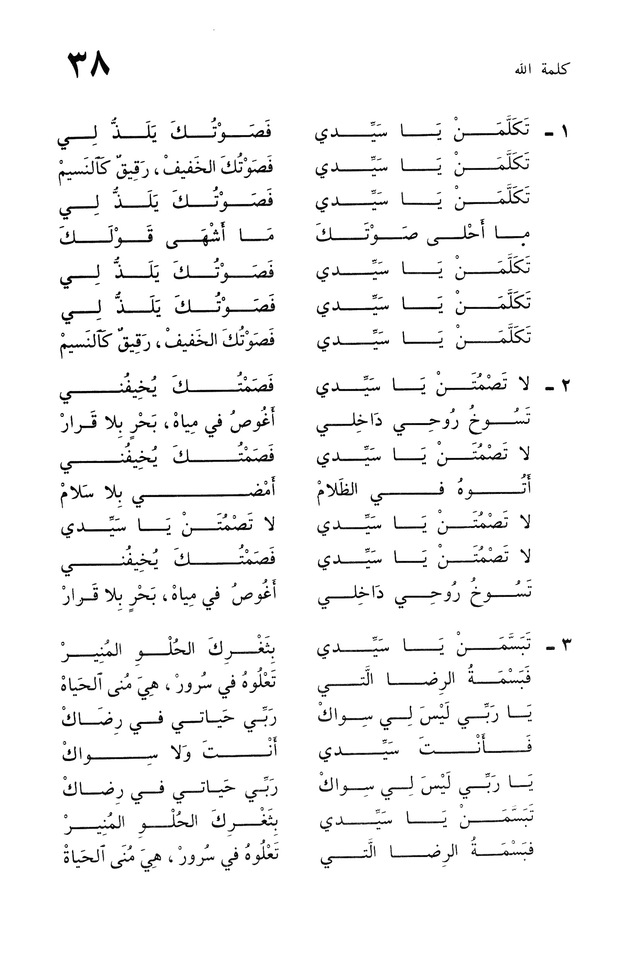 كلمة الله ٣٨
١ ـ تَكَلَّمَـنْ يَـا سَيِّـدي فَصَـوْتُـكَ يَلَـذُّ لِـي
تَكَلَّمَـنْ يَـا سَيِّـدي فَصَوْتُكَ الخَفيف، رَقِيقٌ كَٱلنَسيمْ
تَكَلَّمَـنْ يَـا سَيِّـدي فَصَـوْتُـكَ يَلَـذُّ لِـي
مـا أَحْلـى صَـوْتَـكَ مَـا أَشْهَـى قَـوْلَـكَ
تَكَلَّمَـنْ يَـا سَيِّـدي فَصَـوْتُـكَ يَلَـذُّ لِـي
تَكَلَّمَـنْ يَـا سَيِّـدي فَصَـوْتُـكَ يَلَـذُّ لِـي
تَكَلَّمَـنْ يَـا سَيِّـدي فَصَوْتُكَ الخَفيف، رَقِيقٌ كَٱلنَسيمْ
٢ ـ لا تَصْمُتَـنْ يَـا سَيِّـدي فَصَمْتُـكَ يُخِيفُنـي
تَسُـوخُ رُوحِـي دَاخِلـي أَغُوصُ في مِياهْ، بَحْرٍ بِلا قَـرارْ
لا تَصْمُتَـنْ يَـا سَيِّـدي فَصَمْتُـكَ يُخِيفُنـي
أَتُـوهُ فـي الظَلامْ أَمْضـي بِلا سَلامْ
لا تَصْمُتَـنْ يَـا سَيِّـدي لا تَصْمُتَـنْ يَـا سَيِّـدي
لا تَصْمُتَـنْ يَـا سَيِّـدي فَصَمْتُـكَ يُخِيفُنـي
تَسُـوخُ رُوحِـي دَاخِلـي أَغُوصُ في مِياهْ، بَحْرٍ بِلا قَـرارْ
٣ ـ تَبَسَّمَـنْ يَـا سَيِّـدي بِثَغْـرِكَ الحُلْـوِ المُنِيـرْ
فَبَسْمَـةُ الرِضـا الَّتـي تَعْلُوهُ في سُرورْ، هِيَ مُنى ٱلحَياةْ
يَـا رَبِّـي لَيْسَ لِـي سِواكْ رَبِّـي حَياتـي فـي رِضَـاكْ
فَـأَنْـتَ سَيِّـدي أَنْـتَ وَلا سِـواكْ
يَـا رَبِّـي لَيْسَ لِـي سِواكْ رَبِّـي حَياتـي فـي رِضَـاكْ
تَبَسَّمَـنْ يَـا سَيِّـدي بِثَغْـرِكَ الحُلْـوِ المُنِيـرْ
فَبَسْمَـةُ الرِضـا الَّتـي تَعْلُوهُ في سُرورْ، هِيَ مُنَى ٱلحَياةْ